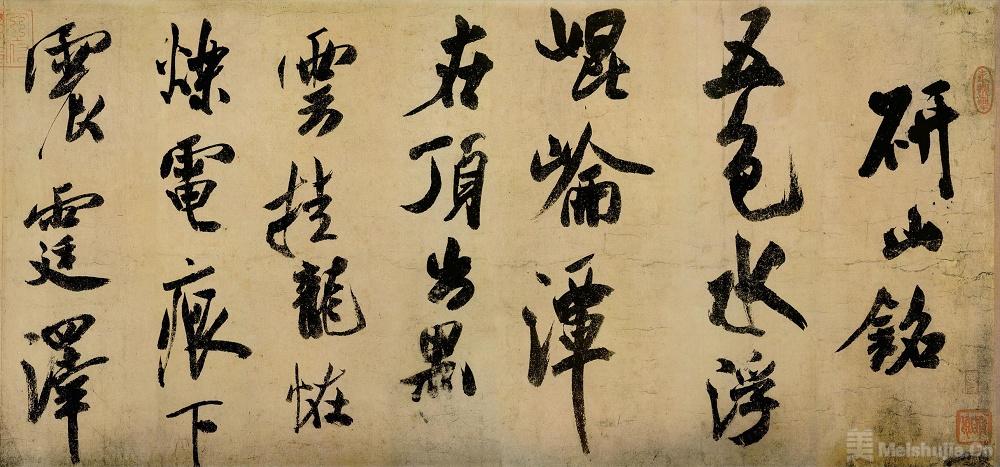 研山銘
五色水浮
崐崘潭
在頂出黑
雲挂龍恠
爍電痕下
震霆澤
美 Meishujia.Cn